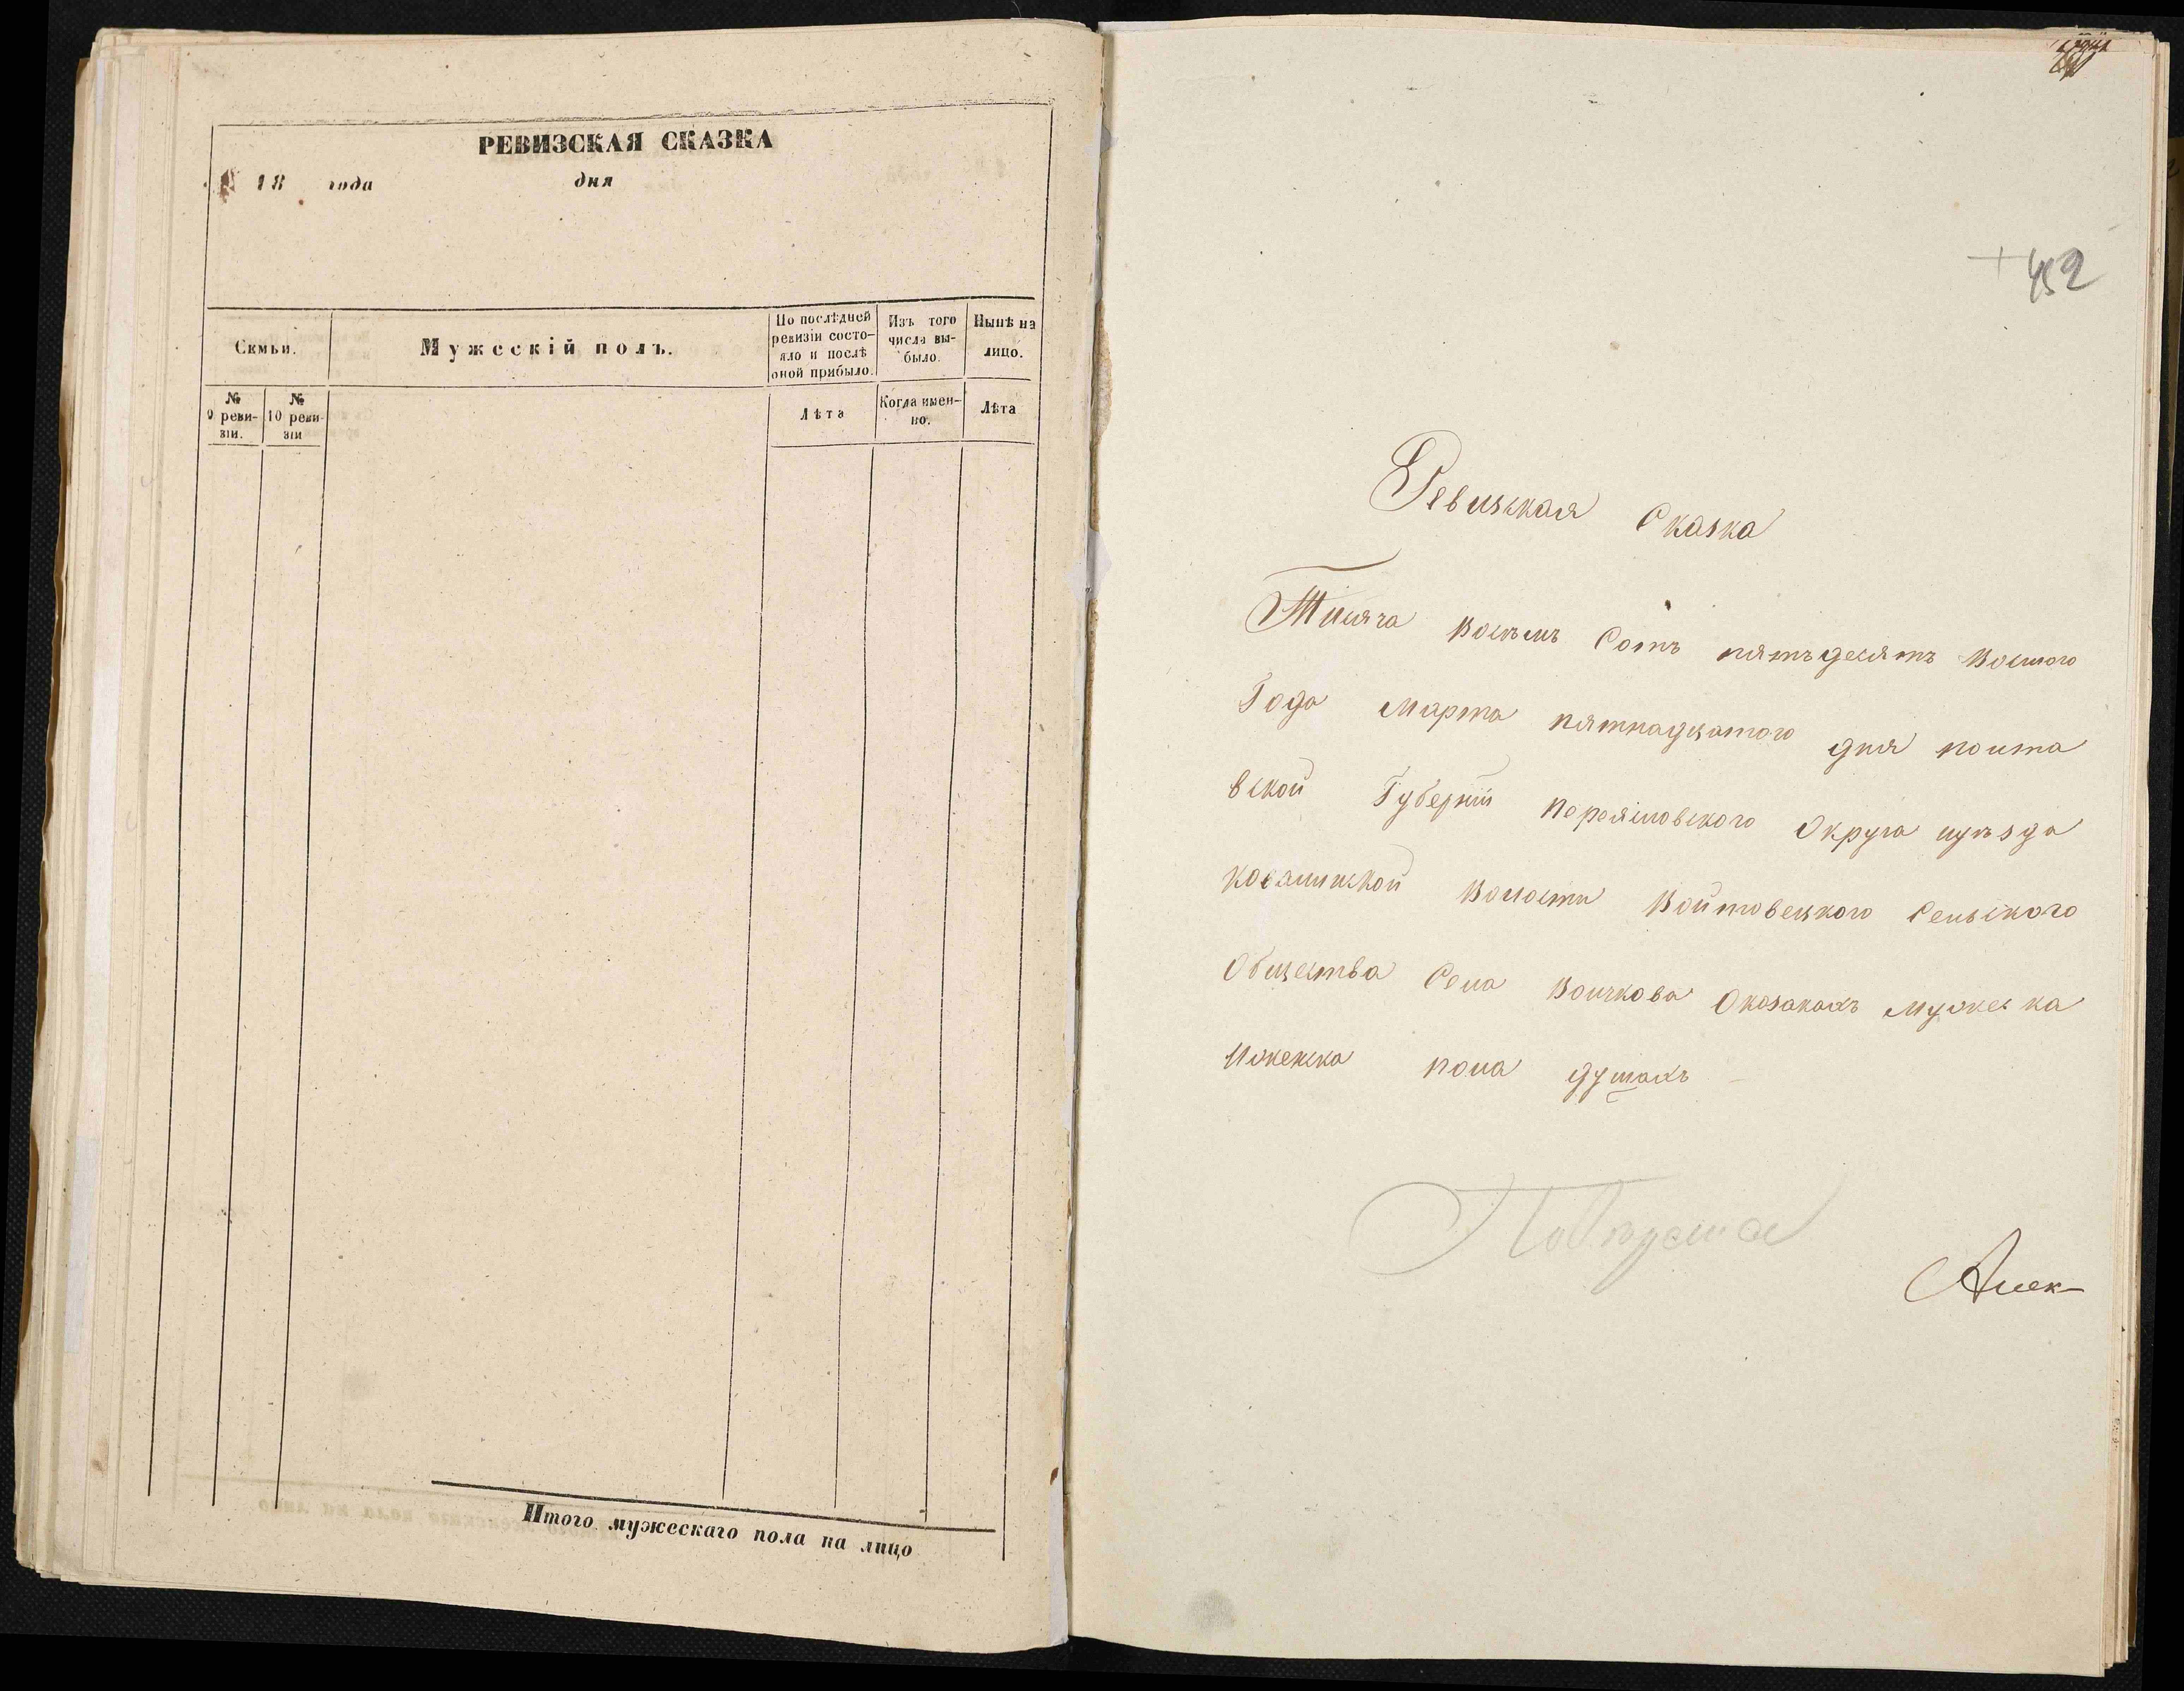 РЕВИЗСКАЯ СКАЗКА
18 года дня
Семьи.
Мужескій полъ.
По послѣдней
ревизіи состо-
яло и послѣ
оной прибыло.
Изъ того
числа вы-
было.
Нынѣ на
лицо.
№
9 реви-
зіи.
№
10 реви-
зіи
Лѣта
Когда имен-
но.
Лѣта
Итого мужескаго пола на лицо
452
Ревизская Сказка
Тисяча восъмъ Сотъ пятъдесятъ Восмого
Года Марта пятнадцатого дня полта
вской Губерній Переясловского Округа иуѣзда
ковалинской Волости Войтовецкого Селъского
Общества Села Волчкова Оказакахъ мужеска
Иженска пола душахъ
Алек-